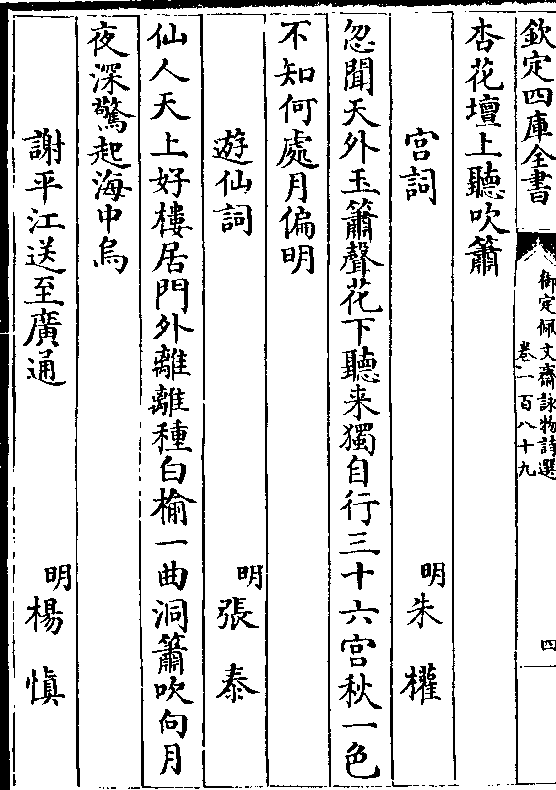 欽定四庫全書
御定佩文齋詠物詩選
卷一百八十九
四
杏花壇上聽吹簫
宮詞 明 朱權
忽聞天外玉簫聲花下聽来獨自行三十六宮秋一色
不知何處月偏明
遊仙詞 明 張泰
仙人天上好樓居門外離離種白榆一曲洞簫吹向月
夜深驚起海中烏
謝平江送至廣通 明 楊慎